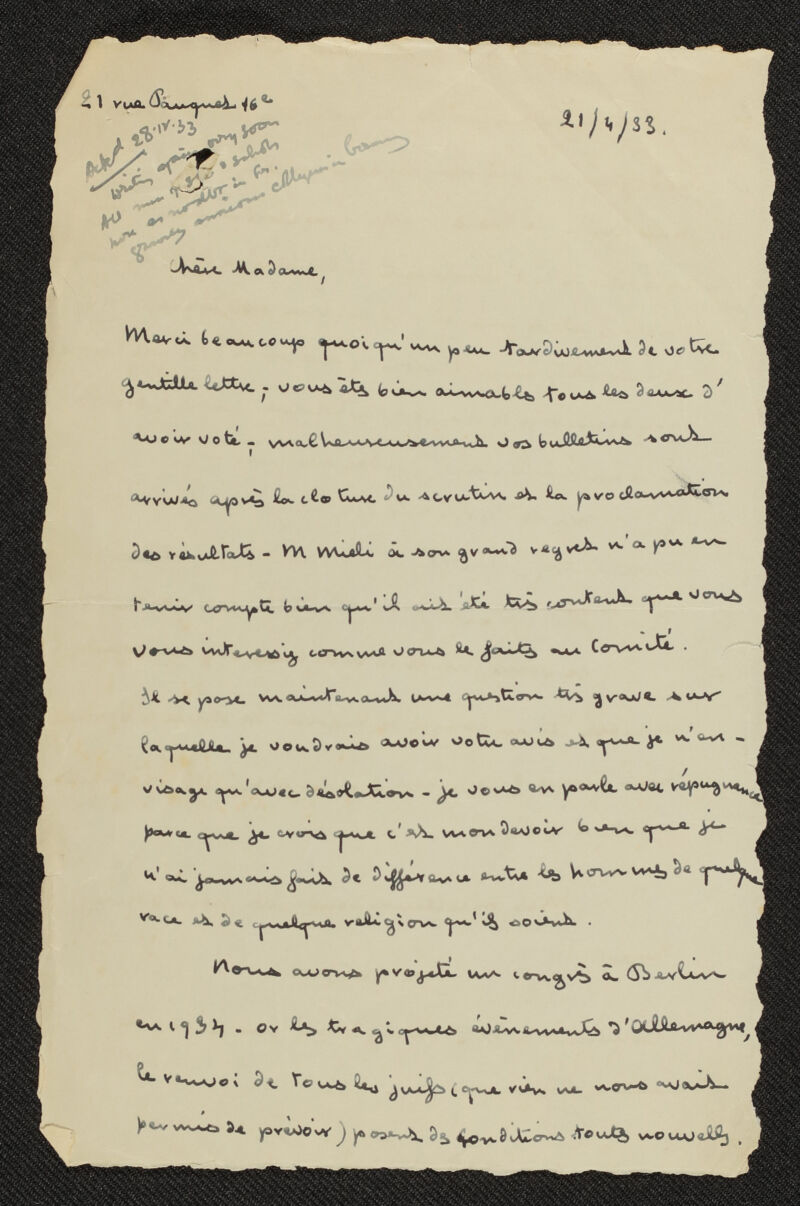 21 rue Pauquet 16e
21/4/33.
Ackd 28.IV.33
writing again very soon
Chère Madame,
Merci beaucoup quoiqu'un peu tardivement de votre
gentille lettre ; vous êts bien aimabls tous les deux d'
avoir voté ; malheureusement vos bulletins sont
arrivés après la cloture du scrutin et la proclamation
des résultats - M Mieli à son grand regret n'a pu en
tenir compte bien qu'il ait été très content que vous
vous interessiz comme vous le faits au Comité.
Il se pose maintenant une question très grave sur
laquelle je voudrais avoir votre avis et que je n'en-
visage qu'avec désolation - je vous en parle avec répugnence
parce que je crois que c'est mon devoir bien que je
n'ai jamais fait de différence entre les hommes de quelque
race et de quelque religion qu'ils soient.
Nous avons projeté un congrès à Berlin
en 1934 - or les tragiques évènements d'Allemagne,
le renvoi de tous les juifs (que rien ne nous avait
permis de prévoir) posent des conditions touts nouvells.